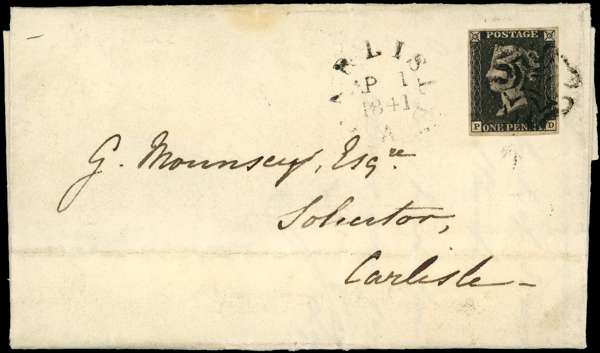 CARLISLE
AP 1
1841
A
POSTAGE
ONE PENNY
P D
G. Mounsey, Esqre.
Solicitor,
Carlisle